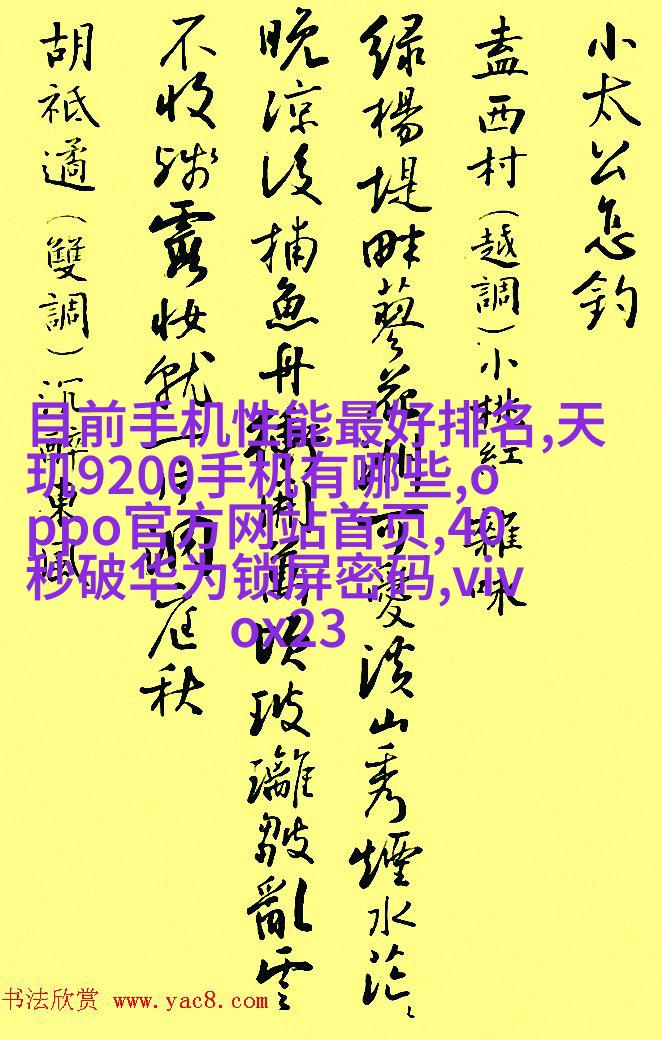 小太公怠釣
盍西村（越調）小桃紅 雜咏
绿楊堤畔蓼花洲可愛溪山秀煙水茫、
晚凉後捕魚舟
玻璃皺亂雲
不收残霞妝就一
庭秋
胡祗遹（雙調）沉醉東風
目前手机性能最好排名,天
玑9200手机有哪些,o
ppo官方网站首页,40
秒破华为锁屏密码,viv
ox23
书法欣赏 www.yac8.com